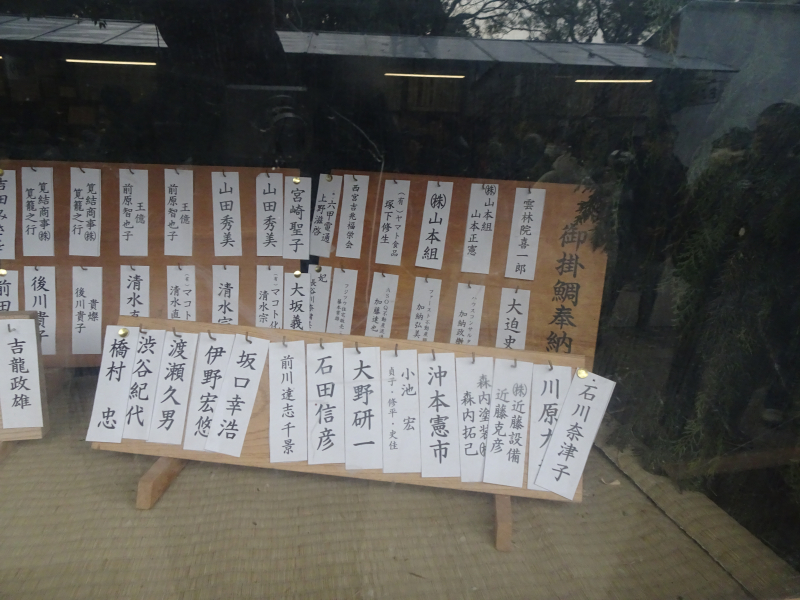 御掛鯛奉納
雲林院喜一郎
㈱山本組
山本正憲
㈱山本組
(有)ヤマト食品
塚下修生
西宮吉兆福栄会
六甲電通
上野滋啓
宮崎聖子
山田秀美
山田秀美
王億
前原智也子
王億
前原智也子
筧結商事㈱
筧籠之行
筧結商事㈱
筧籠之行
大迫史
加納政徹
加納弘美
加藤達也
大坂義
(有)マコト化
清水宗
清水宗
(有)マコト
清水直
清水直
貴燦
後川貴子
後川貴子
前田
石川奈津子
川原
㈱近藤設備
近藤克彦
森内塗装㈱
森内拓己
沖本憲市
小池 宏
貞子・修平・史佳
大野研一
石田信彦
前川達志千景
坂口幸浩
伊野宏悠
渡瀬久男
渋谷紀代
橋村 忠
吉龍政雄